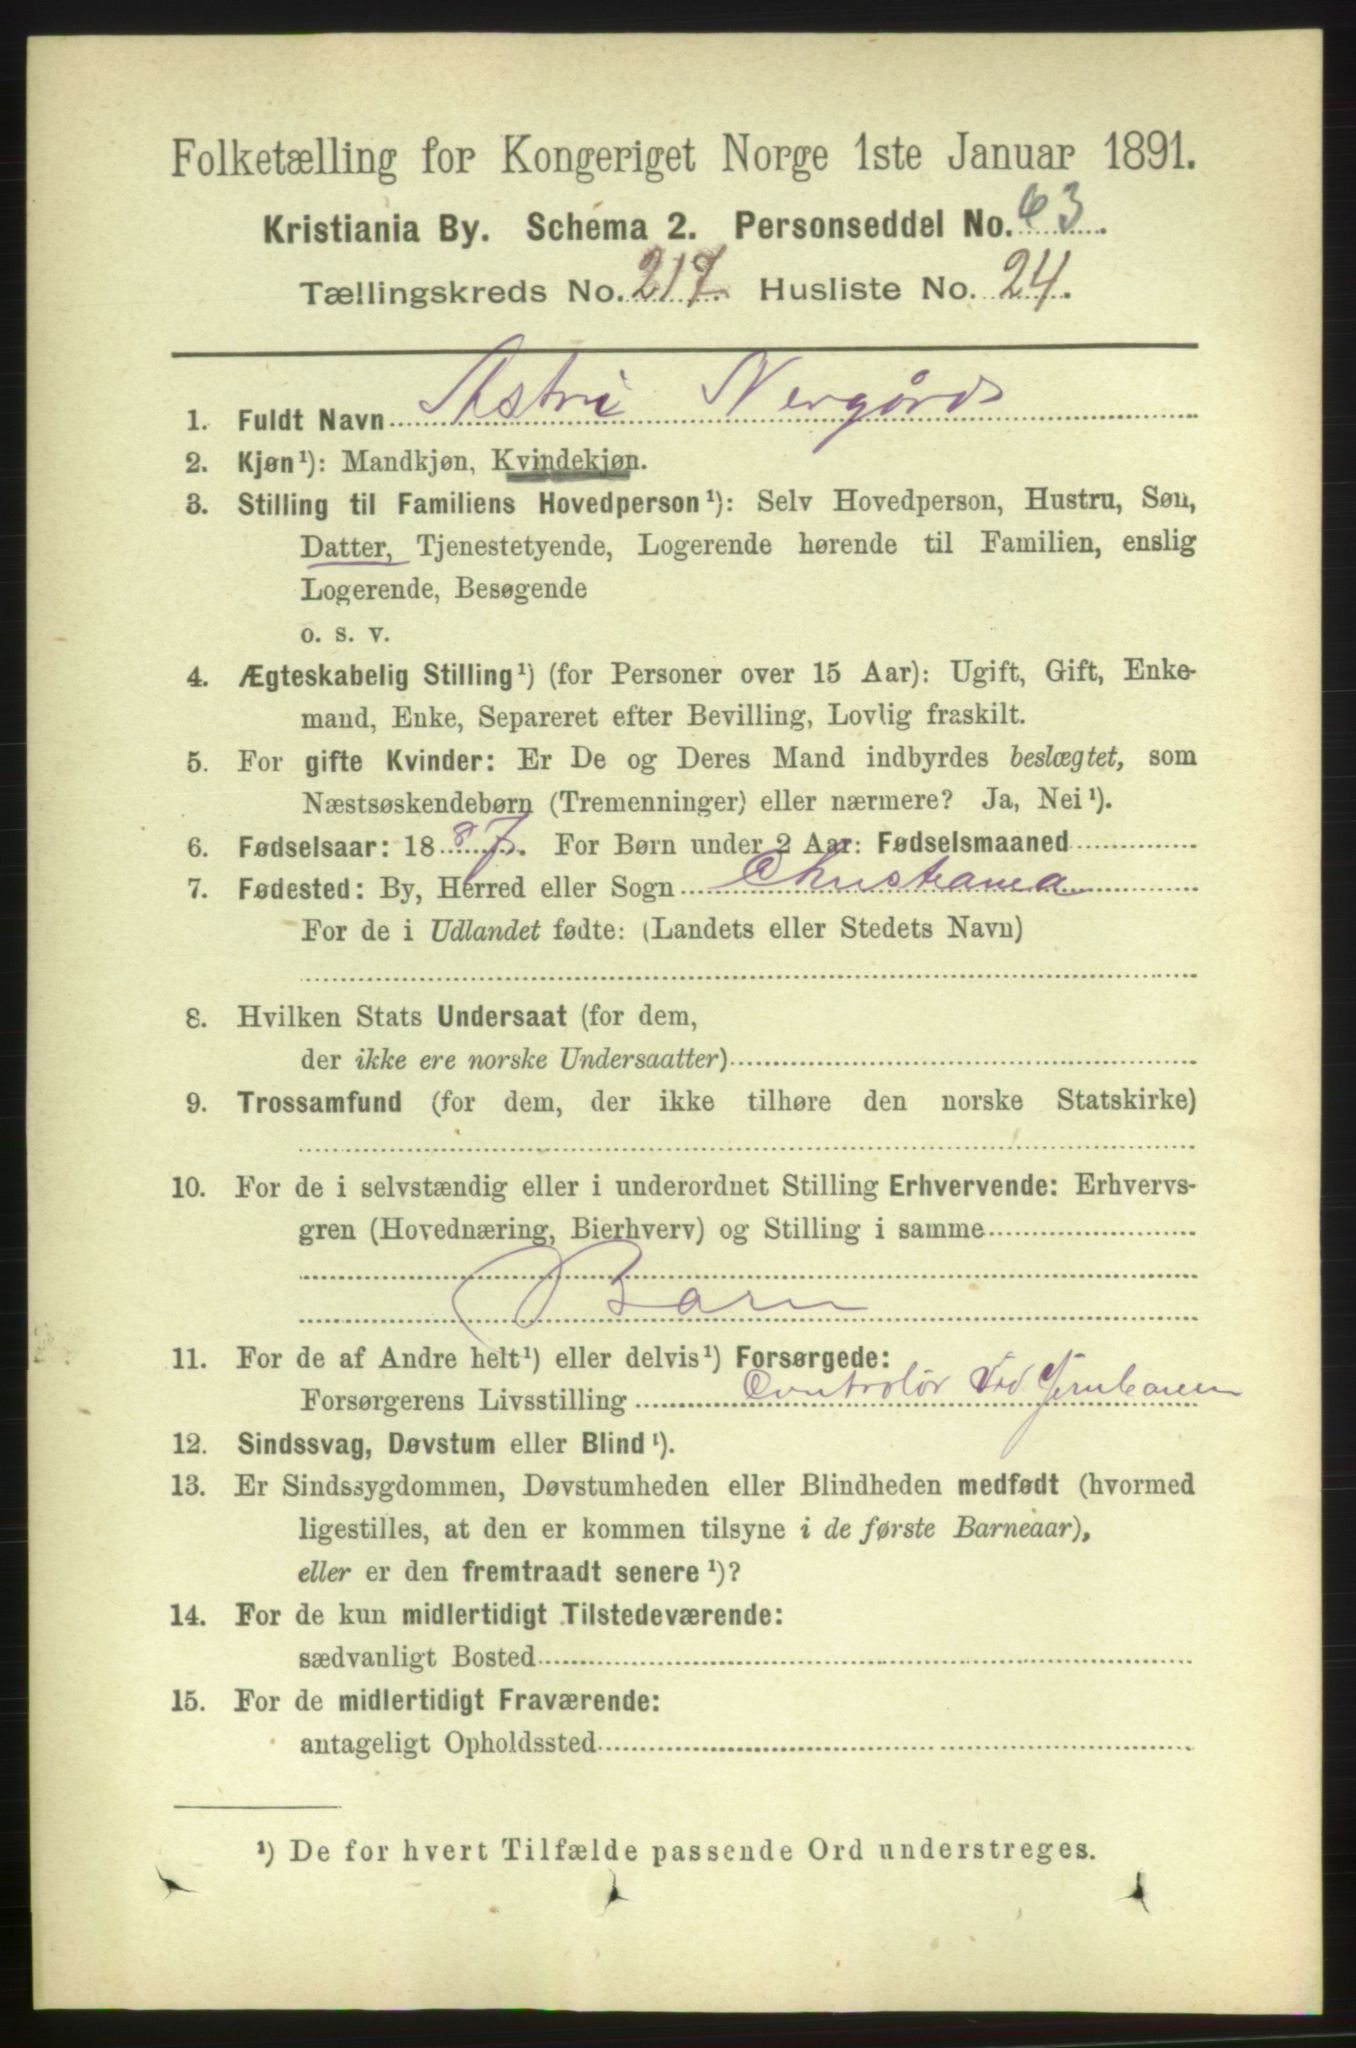 Folketælling for Kongeriget Norge 1ste Januar 1891.
Kristiania By. Schema 2. Personseddel No. 63.
Tællingskreds No. 217. Husliste No. 24.
1. Fuldt Navn Astri Nergård
2. Kjøn¹): Mandkjøn, Kvindekjøn.
3. Stilling til Familiens Hovedperson¹): Selv Hovedperson, Hustru, Søn,
Datter, Tjenestetyende, Logerende hørende til Familien, enslig
Logerende, Besøgende
o. s. v.
4. Ægteskabelig Stilling¹) (for Personer over 15 Aar): Ugift, Gift, Enke-
mand, Enke, Separeret efter Bevilling, Lovlig fraskilt.
5. For gifte Kvinder: Er De og Deres Mand indbyrdes beslægtet, som
Næstsøskendebørn (Tremenninger) eller nærmere? Ja, Nei¹).
6. Fødselsaar: 1887. For Børn under 2 Aar: Fødselsmaaned
7. Fødested: By, Herred eller Sogn Christiania
For de i Udlandet fødte: (Landets eller Stedets Navn)
8. Hvilken Stats Undersaat (for dem,
der ikke ere norske Undersaatter)
9. Trossamfund (for dem, der ikke tilhøre den norske Statskirke)
10. For de i selvstændig eller i underordnet Stilling Erhvervende: Erhvervs-
gren (Hovednæring, Bierhverv) og Stilling i samme
Barn
11. For de af Andre helt¹) eller delvis¹) Forsørgede:
Forsørgerens Livsstilling Controlör Ved Jernbanen
12. Sindssvag, Døvstum eller Blind¹).
13. Er Sindssygdommen, Døvstumheden eller Blindheden medfødt (hvormed
ligestilles, at den er kommen tilsyne i de første Barneaar),
eller er den fremtraadt senere¹)?
14. For de kun midlertidigt Tilstedeværende:
sædvanligt Bosted
15. For de midlertidigt Fraværende:
antageligt Opholdssted
¹) De for hvert Tilfælde passende Ord understreges.